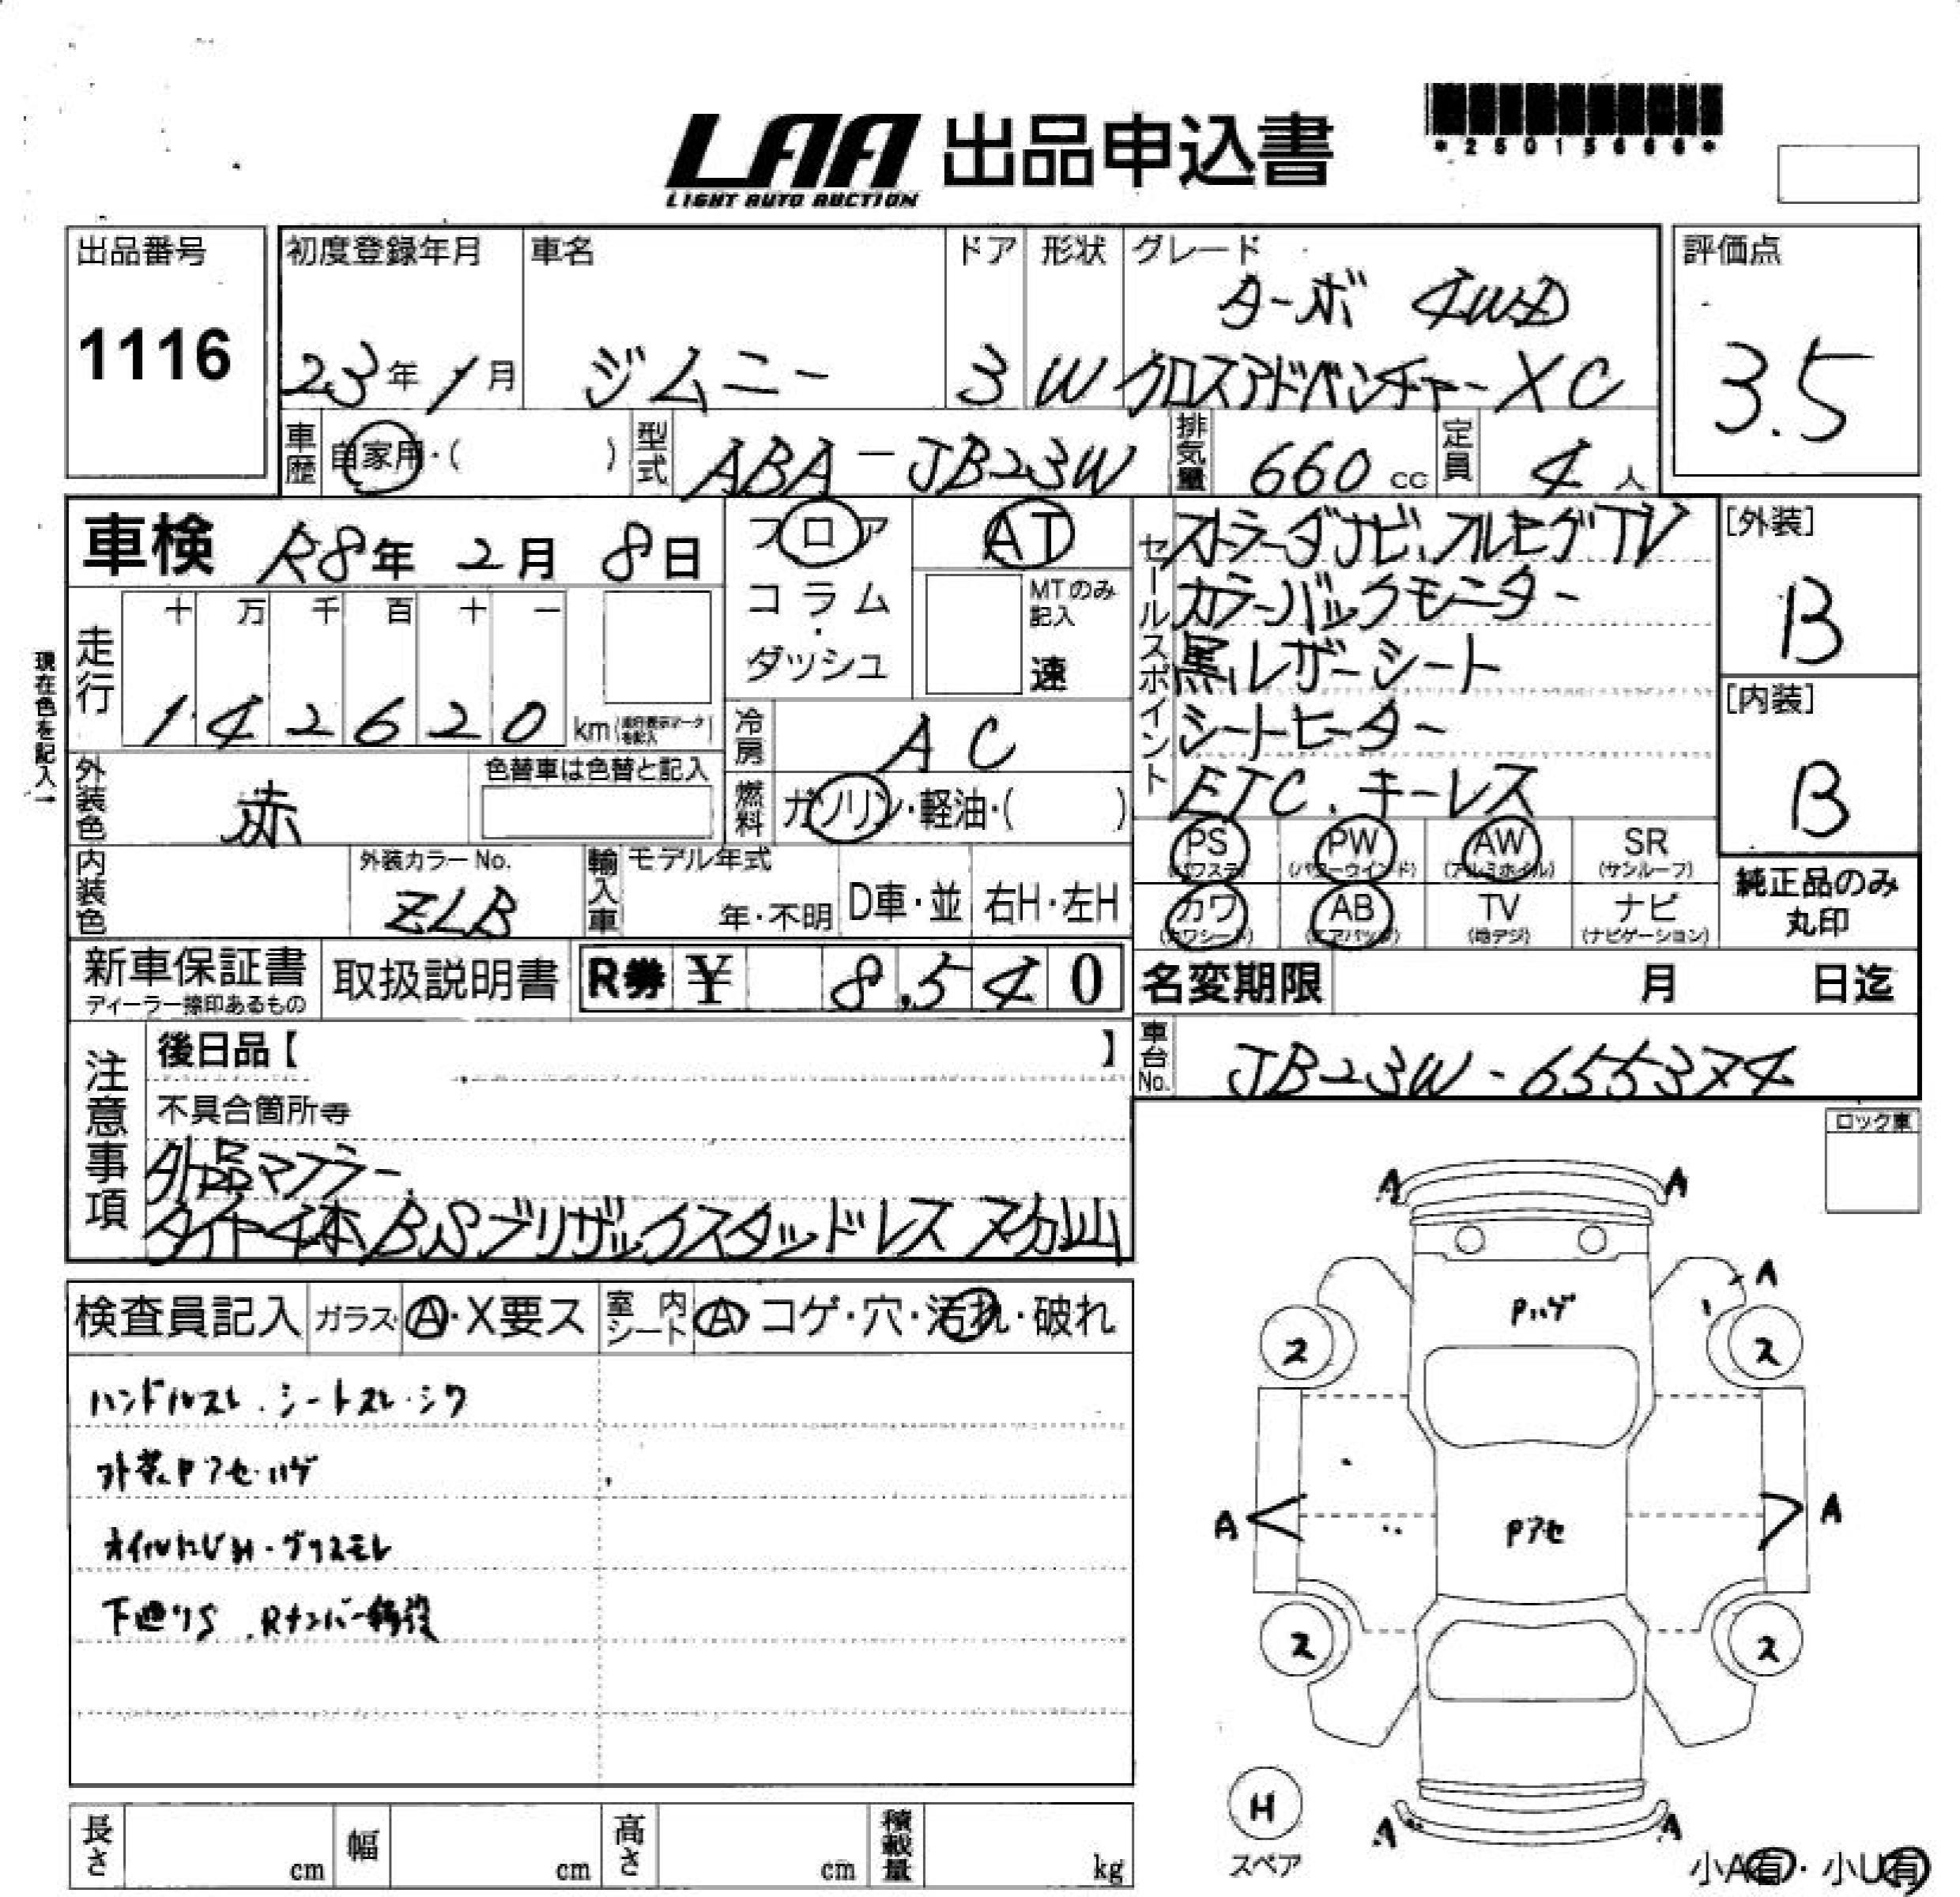 LAA 出品申込書
LIGHT AUTO AUCTION
*25015666*
出品番号
1116
初度登録年月
23年1月
車名
ジムニー
ドア
3
形状
W
グレード
ターボ 4WD
クロスアドベンチャーXC
評価点
3.5
車歴
自家用・( )
型式
ABA-JB23W
排気量
660 cc
定員
4 人
車検 R8年 2月 8日
フロア
コラム
・
ダッシュ
AT
MTのみ記入
速
走行
十 万 千 百 十 一
1 4 2 6 2 0 km
現在色を記入→
外装色
赤
色替車は色替と記入
冷房
AC
燃料
ガソリン・軽油・( )
内装色
外装カラーNo.
ZLB
輸入車
モデル年式
年・不明
D車・並
右H・左H
セールスポイント
ストラーダナビ、フルセグTV
カラーバックモニター
黒レザーシート
シートヒーター
ETC.キーレス
PS
(パワステ)
PW
(パワーウインド)
AW
(アルミホイル)
SR
(サンルーフ)
カワ
(カワシート)
AB
(エアバッグ)
TV
(地デジ)
ナビ
(ナビゲーション)
[外装]
B
[内装]
B
純正品のみ
丸印
新車保証書
ディーラー捺印あるもの
取扱説明書
R券 ¥ 8,540
名変期限 月 日迄
車台No.
JB23W-655374
注意事項
後日品【 】
不具合箇所等
外品マフラー
タイヤ4本BSブリザックスタッドレス 7分山
ロック車
検査員記入
ガラス
A・X要ス
室内シート
A・コゲ・穴・汚れ・破れ
ハンドルスレ.シートスレ・シワ
外装Pアセ・ハゲ
オイルにじみ・グリスモレ
下廻りS.Rナンバー移設
A A
A
Pハゲ
ス ス
A A
Pアセ
ス ス
H
スペア
A A
小A有・小U有
長さ cm
幅 cm
高さ cm
積載量 kg